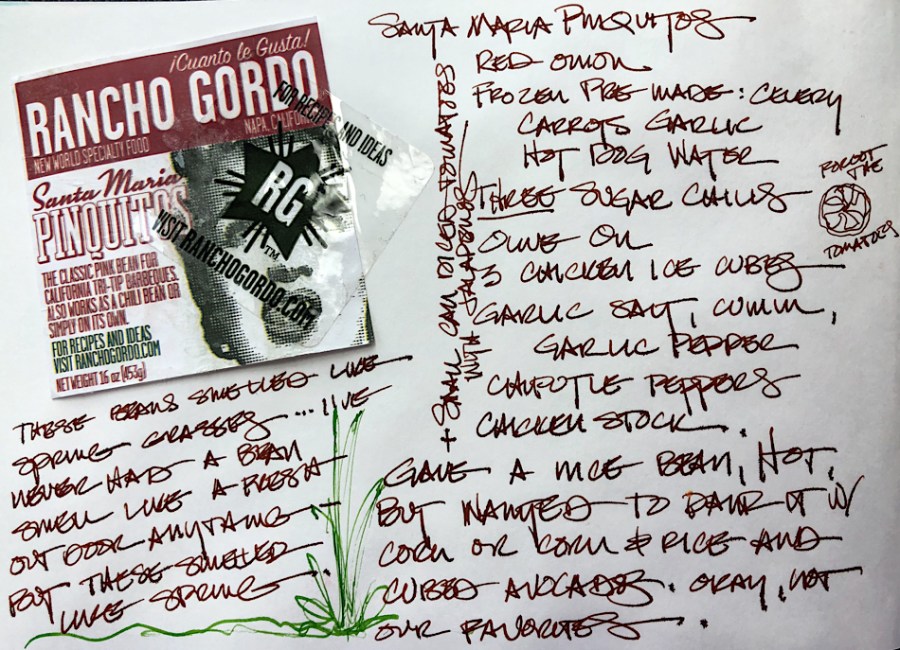 ¡Cuanto le Gusta!
RANCHO GORDO
NEW WORLD SPECIALTY FOOD
NAPA, CALIFOR
FOR RECIPES AND IDEAS
RG™
VISIT RANCHOGORDO.COM
Santa Maria
PINQUITOS
THE CLASSIC PINK BEAN FOR
CALIFORNIA TRI-TIP BARBEQUES.
ALSO WORKS AS A CHILI BEAN OR
SIMPLY ON ITS OWN.
FOR RECIPES AND IDEAS
VISIT RANCHOGORDO.COM
NET WEIGHT 16 oz (453g)
SANTA MARIA PINQUITOS
RED ONION
FROZEN PRE-MADE: CELERY
CARROTS GARLIC
HOT DOG WATER
THREE SUGAR CHILIS
OLIVE OIL
3 CHICKEN ICE CUBES
GARLIC SALT, CUMIN,
GARLIC PEPPER
CHIPOTLE PEPPERS
CHICKEN STOCK.
+ SMALL CAN DICED TOMATOES
WITH JALAPENOS
FORGOT THE
TOMATOES
THESE BEANS SMELLED LIKE
SPRING GRASSES... I'VE
NEVER HAD A BEAN
SMELL LIKE A FRESH
OUT DOOR ANYTHING
BUT THESE SMELLED
LIKE SPRING...
GAVE A NICE BEAN, HOT,
BUT WANTED TO PAIR IT W/
CORN OR CORN & RICE AND
CUBED AVOCADOS. OKAY, NOT
OUR FAVORITES.